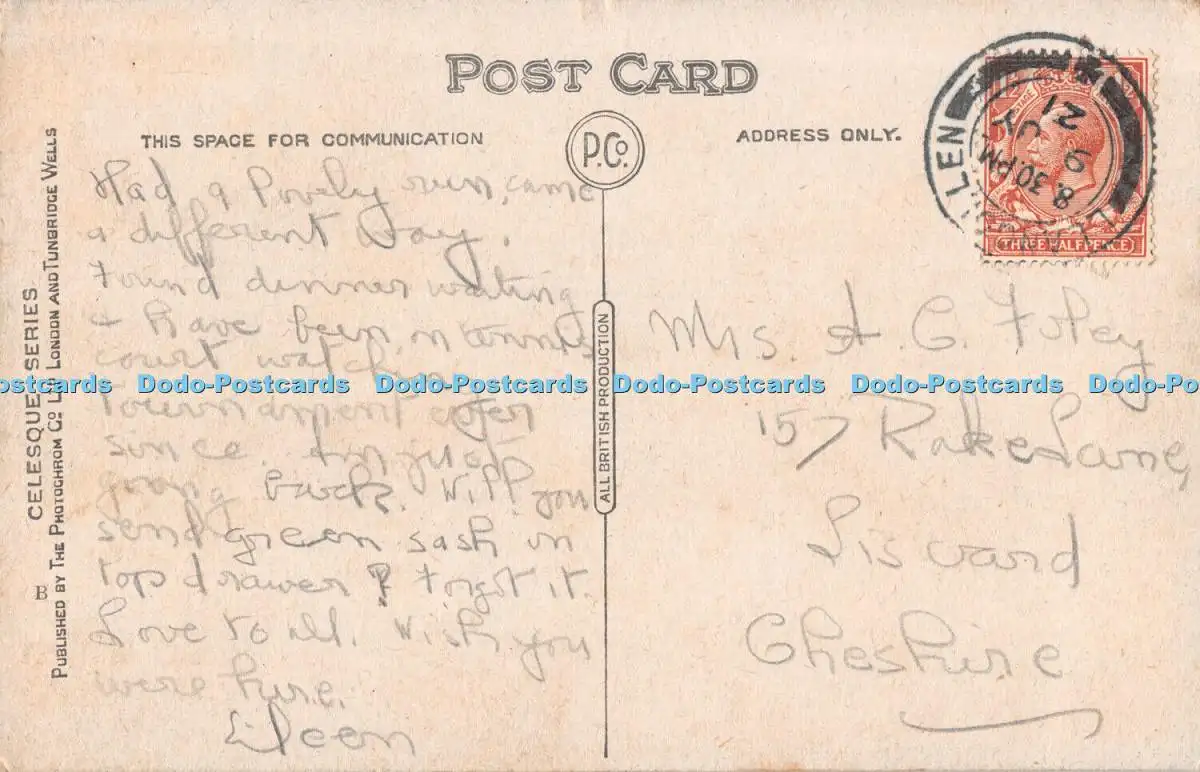 POST CARD
THIS SPACE FOR COMMUNICATION
P.Co.
ADDRESS ONLY.
Had a lovely run, came
a different way.
Found dinner waiting
& have been in tennis
court watching
tournament ever
since. Am just
going back. Will you
send green sash in
top drawer? Forgot it.
Love to all. Wish you
were here.
Eileen
Mrs. A. C. Foley
157 Rake Lane,
Liscard
Cheshire
THREE HALFPENCE
8.30 PM
9
21
LEN
ALL BRITISH PRODUCTION
CELESQUE SERIES
PUBLISHED BY THE PHOTOCHROM CO. LTD LONDON AND TUNBRIDGE WELLS
B
Dodo-Postcards Dodo-Postcards Dodo-Postcards Dodo-Postcards Dodo-Postcards Dodo-Postcards